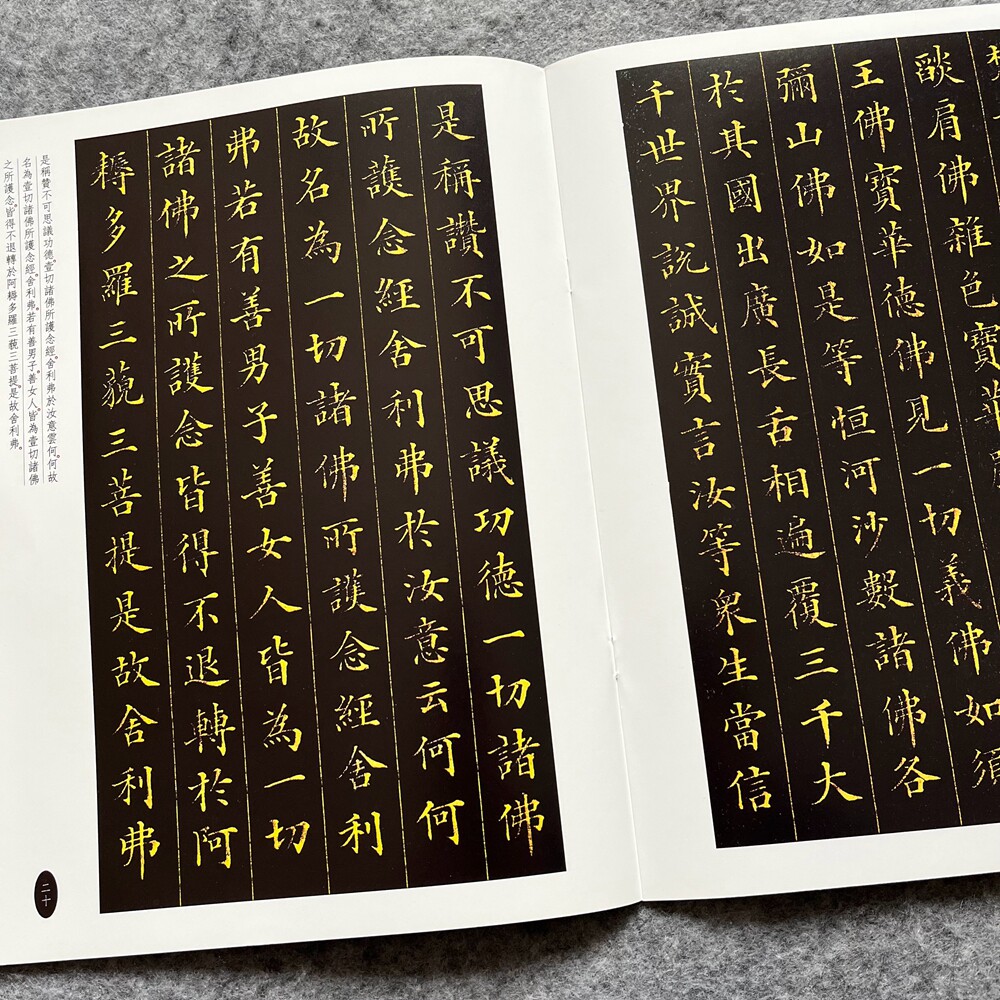 燄肩佛雜色寶華
王佛寶華德佛見一切義佛如須
彌山佛如是等恒河沙數諸佛各
於其國出廣長舌相遍覆三千大
千世界説誠實言汝等衆生當信
是稱讚不可思議功德一切諸佛
所護念經舍利弗於汝意云何何
故名為一切諸佛所護念經舍利
弗若有善男子善女人皆為一切
諸佛之所護念皆得不退轉於阿
耨多羅三藐三菩提是故舍利弗
是稱贊不可思議功德。壹切諸佛所護念經。舍利弗於汝意雲何。何故
名為壹切諸佛所護念經。舍利弗。若有善男子。善女人。皆為壹切諸佛
之所護念。皆得不退轉於阿耨多羅三藐三菩提。是故舍利弗。
二十